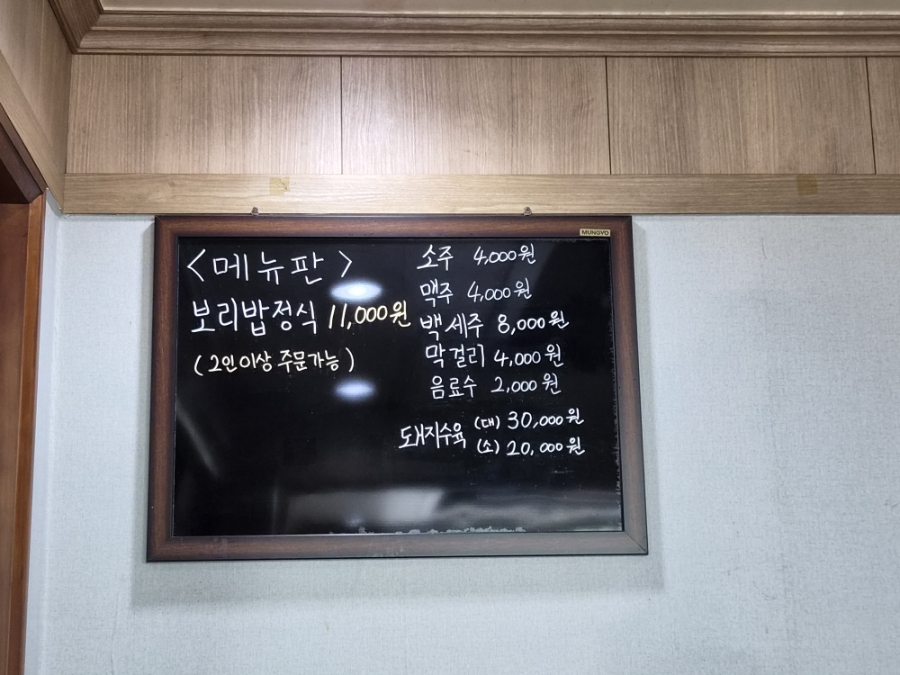 MUNGYO
<메뉴판>
보리밥정식 11,000원
(2인이상 주문가능)
소주 4,000원
맥주 4,000원
백세주 8,000원
막걸리 4,000원
음료수 2,000원
도돼지수육 (대) 30,000원
(소) 20,000원